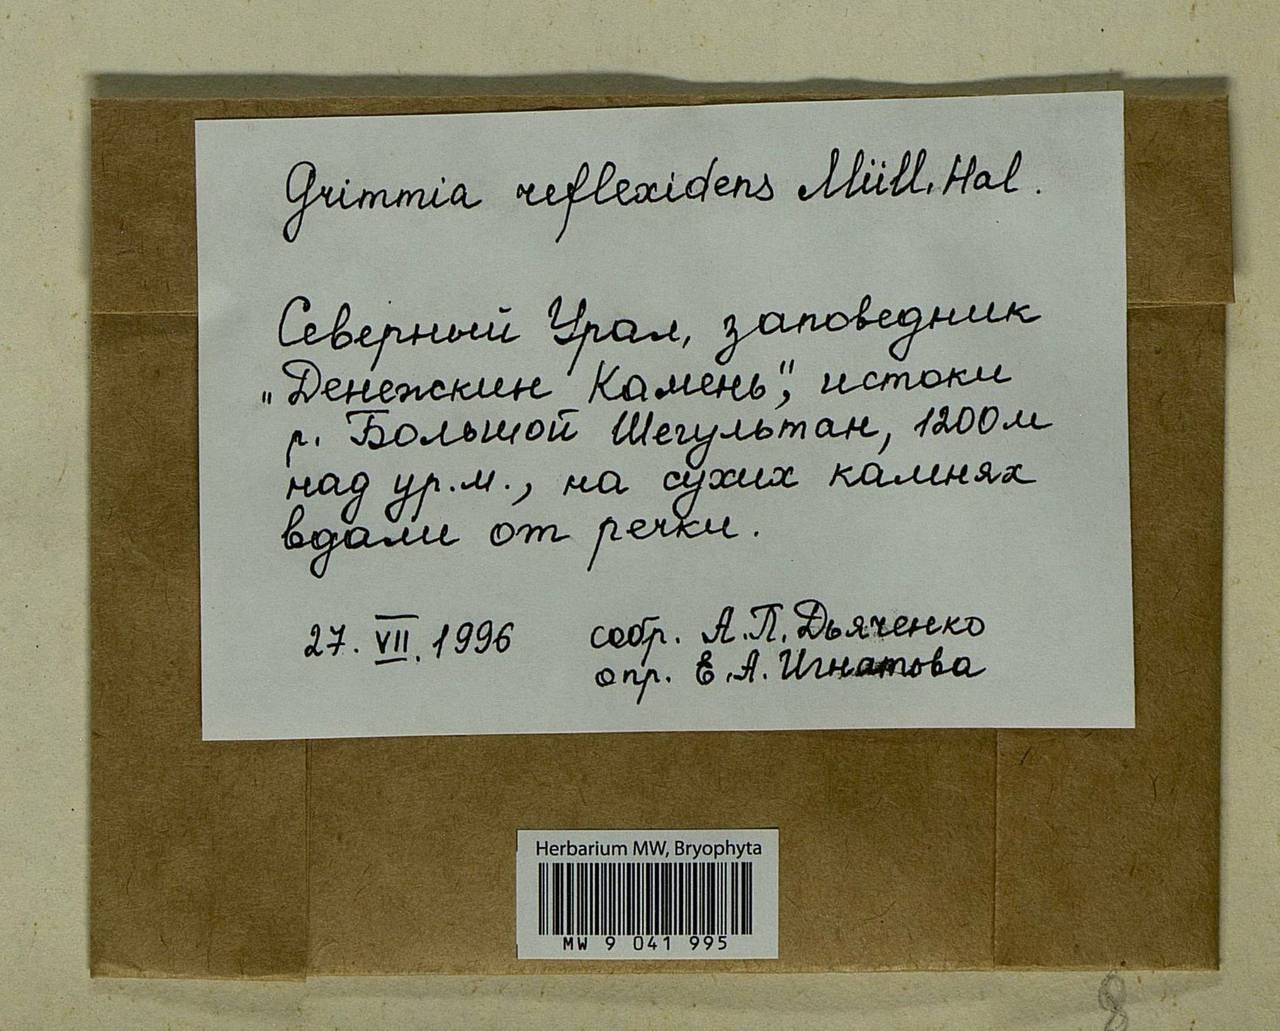 Grimmia reflexidens Müll. Hal.
Северный Урал, заповедник
„Денежкин Камень", истоки
р. Большой Шегультан, 1200м
над ур.м., на сухих камнях
вдали от речки.
27. VII. 1996 собр. А.П. Дьяченко
опр. Е.А. Игнатова
Herbarium MW, Bryophyta
MW 9 041 995
8